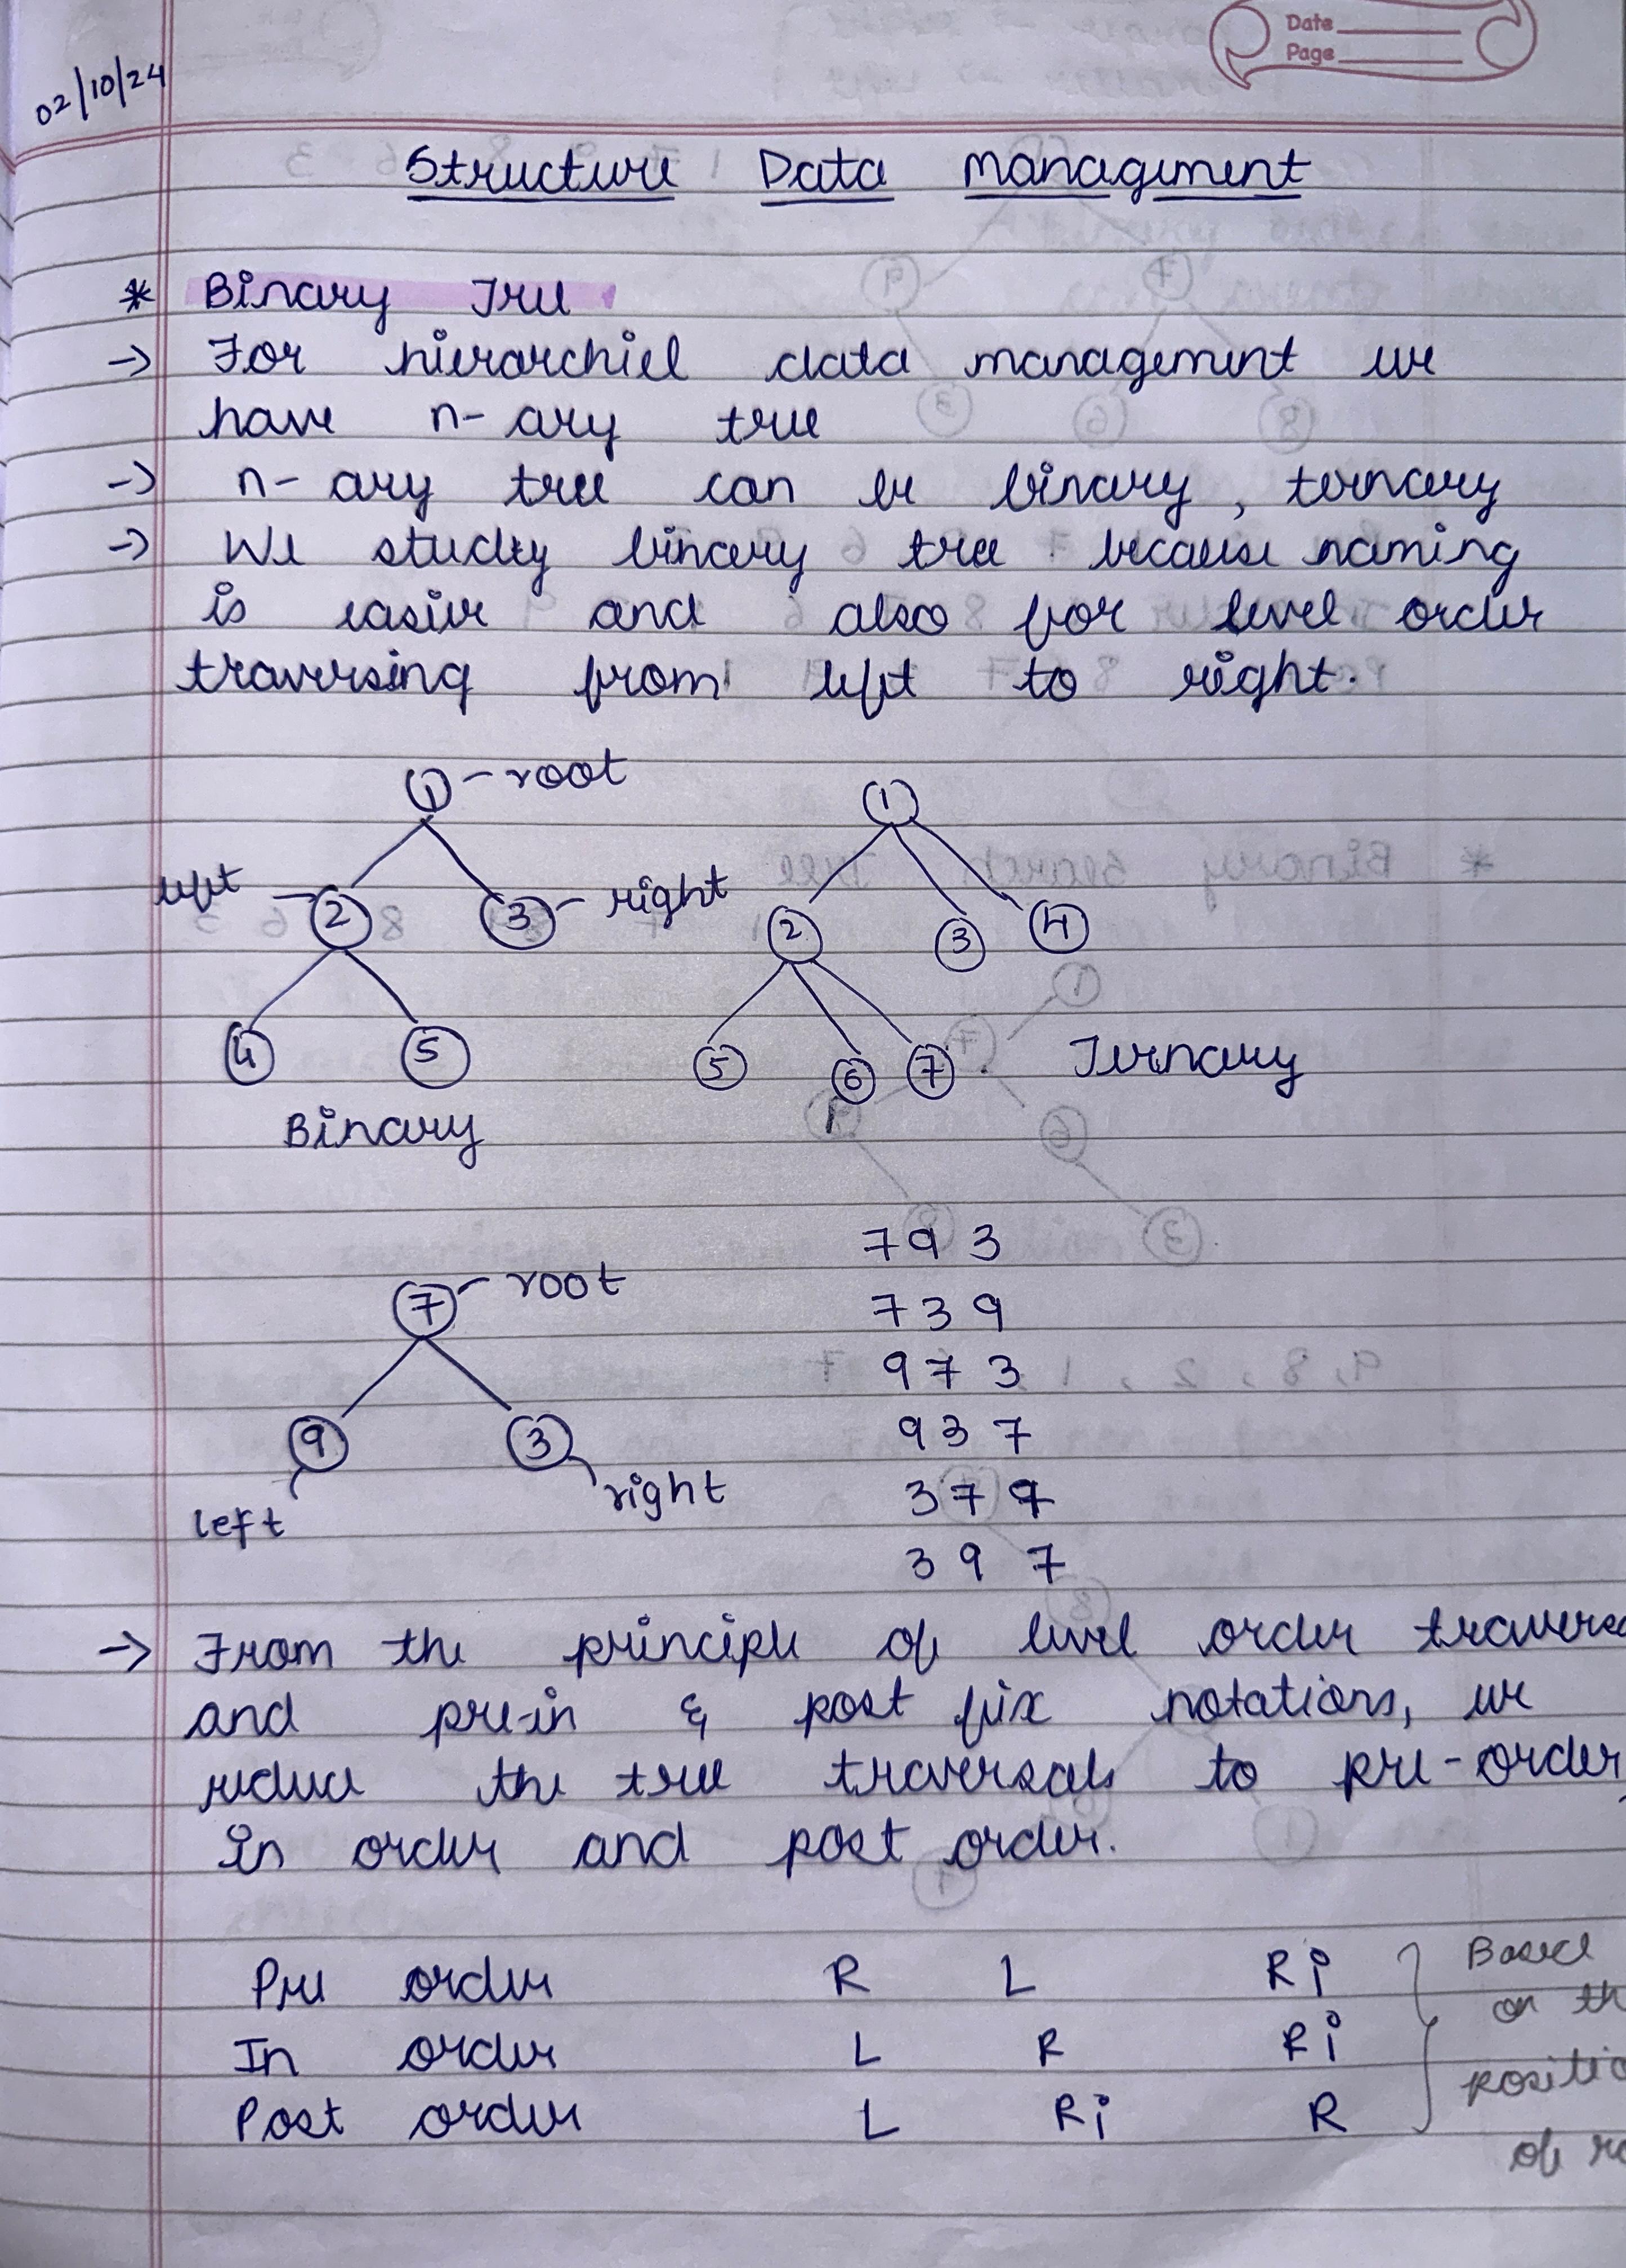 Date
Page
02/10/24
Structure Data Management
* Binary Tree
→ For hierarchiel data management we
have n-ary tree
→ n-ary tree can be binary, ternary
→ We studey binary tree because naming
is easier and also for level order
traversing from left to right.
1 - root
left - 2 3 - right
4 5
Binary
1
2 3 4
5 6 7 Ternary
7 - root
9 3
left right
7 9 3
7 3 9
9 7 3
9 3 7
3 7 9
3 9 7
→ From the principle of level order travers
and pre-in & post fix notations, we
reduce the tree traversals to pre-order,
in order and post order.
Pre order R L Ri } Based
In order L R Ri on th
Post order L Ri R positio
of ro